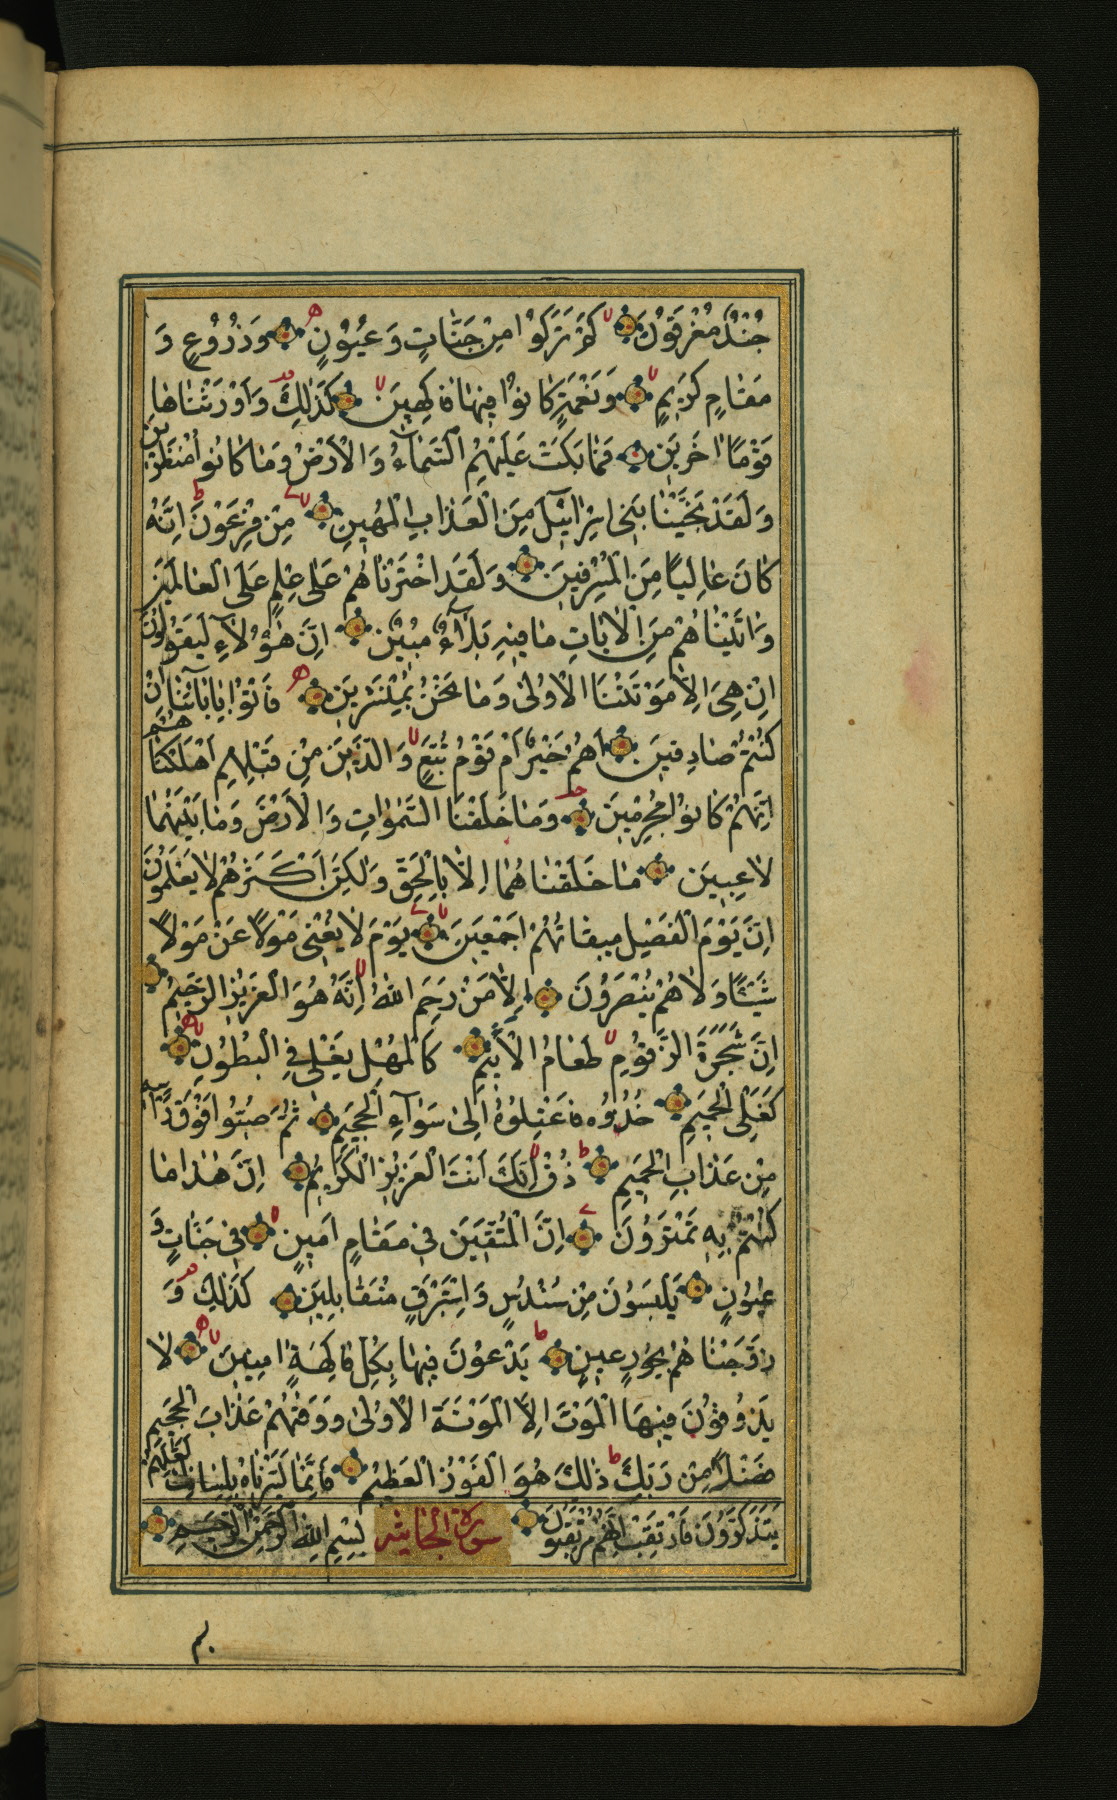 جُنْدٌ مُغْرَقُونَ كَمْ تَرَكُوا مِنْ جَنَّاتٍ وَعُيُونٍ وَزُرُوعٍ وَ
مَقَامٍ كَرِيمٍ وَنَعْمَةٍ كَانُوا فِيهَا فَاكِهِينَ كَذَلِكَ وَأَوْرَثْنَاهَا
قَوْمًا آخَرِينَ فَمَا بَكَتْ عَلَيْهِمُ السَّمَاءُ وَالْأَرْضُ وَمَا كَانُوا مُنْظَرِينَ
وَلَقَدْ نَجَّيْنَا بَنِي إِسْرَائِيلَ مِنَ الْعَذَابِ الْمُهِينِ مِنْ فِرْعَوْنَ إِنَّهُ
كَانَ عَالِيًا مِنَ الْمُسْرِفِينَ وَلَقَدِ اخْتَرْنَاهُمْ عَلَى عِلْمٍ عَلَى الْعَالَمِينَ
وَآتَيْنَاهُمْ مِنَ الْآيَاتِ مَا فِيهِ بَلَاءٌ مُبِينٌ إِنَّ هَؤُلَاءِ لَيَقُولُونَ
إِنْ هِيَ إِلَّا مَوْتَتُنَا الْأُولَى وَمَا نَحْنُ بِمُنْشَرِينَ فَأْتُوا بِآبَائِنَا إِنْ
كُنْتُمْ صَادِقِينَ أَهُمْ خَيْرٌ أَمْ قَوْمُ تُبَّعٍ وَالَّذِينَ مِنْ قَبْلِهِمْ أَهْلَكْنَاهُمْ
إِنَّهُمْ كَانُوا مُجْرِمِينَ وَمَا خَلَقْنَا السَّمَوَاتِ وَالْأَرْضَ وَمَا بَيْنَهُمَا
لَاعِبِينَ مَا خَلَقْنَاهُمَا إِلَّا بِالْحَقِّ وَلَكِنَّ أَكْثَرَهُمْ لَا يَعْلَمُونَ
إِنَّ يَوْمَ الْفَصْلِ مِيقَاتُهُمْ أَجْمَعِينَ يَوْمَ لَا يُغْنِي مَوْلًا عَنْ مَوْلًا
شَيْئًا وَلَا هُمْ يُنْصَرُونَ إِلَّا مَنْ رَحِمَ اللَّهُ إِنَّهُ هُوَ الْعَزِيزُ الرَّحِيمُ
إِنَّ شَجَرَةَ الزَّقُّومِ طَعَامُ الْأَثِيمِ كَالْمُهْلِ يَغْلِي فِي الْبُطُونِ
كَغَلْيِ الْحَمِيمِ خُذُوهُ فَاعْتِلُوهُ إِلَى سَوَاءِ الْجَحِيمِ ثُمَّ صُبُّوا فَوْقَ رَأْسِهِ
مِنْ عَذَابِ الْحَمِيمِ ذُقْ إِنَّكَ أَنْتَ الْعَزِيزُ الْكَرِيمُ إِنَّ هَذَا مَا
كُنْتُمْ بِهِ تَمْتَرُونَ إِنَّ الْمُتَّقِينَ فِي مَقَامٍ أَمِينٍ فِي جَنَّاتٍ وَ
عُيُونٍ يَلْبَسُونَ مِنْ سُنْدُسٍ وَإِسْتَبْرَقٍ مُتَقَابِلِينَ كَذَلِكَ وَ
زَوَّجْنَاهُمْ بِحُورٍ عِينٍ يَدْعُونَ فِيهَا بِكُلِّ فَاكِهَةٍ آمِنِينَ لَا
يَذُوقُونَ فِيهَا الْمَوْتَ إِلَّا الْمَوْتَةَ الْأُولَى وَوَقَاهُمْ عَذَابَ الْجَحِيمِ
فَضْلًا مِنْ رَبِّكَ ذَلِكَ هُوَ الْفَوْزُ الْعَظِيمُ فَإِنَّمَا يَسَّرْنَاهُ بِلِسَانِكَ لَعَلَّهُمْ
يَتَذَكَّرُونَ فَارْتَقِبْ إِنَّهُمْ مُرْتَقِبُونَ سورة الجاثية بِسْمِ اللَّهِ الرَّحْمَنِ الرَّحِيمِ